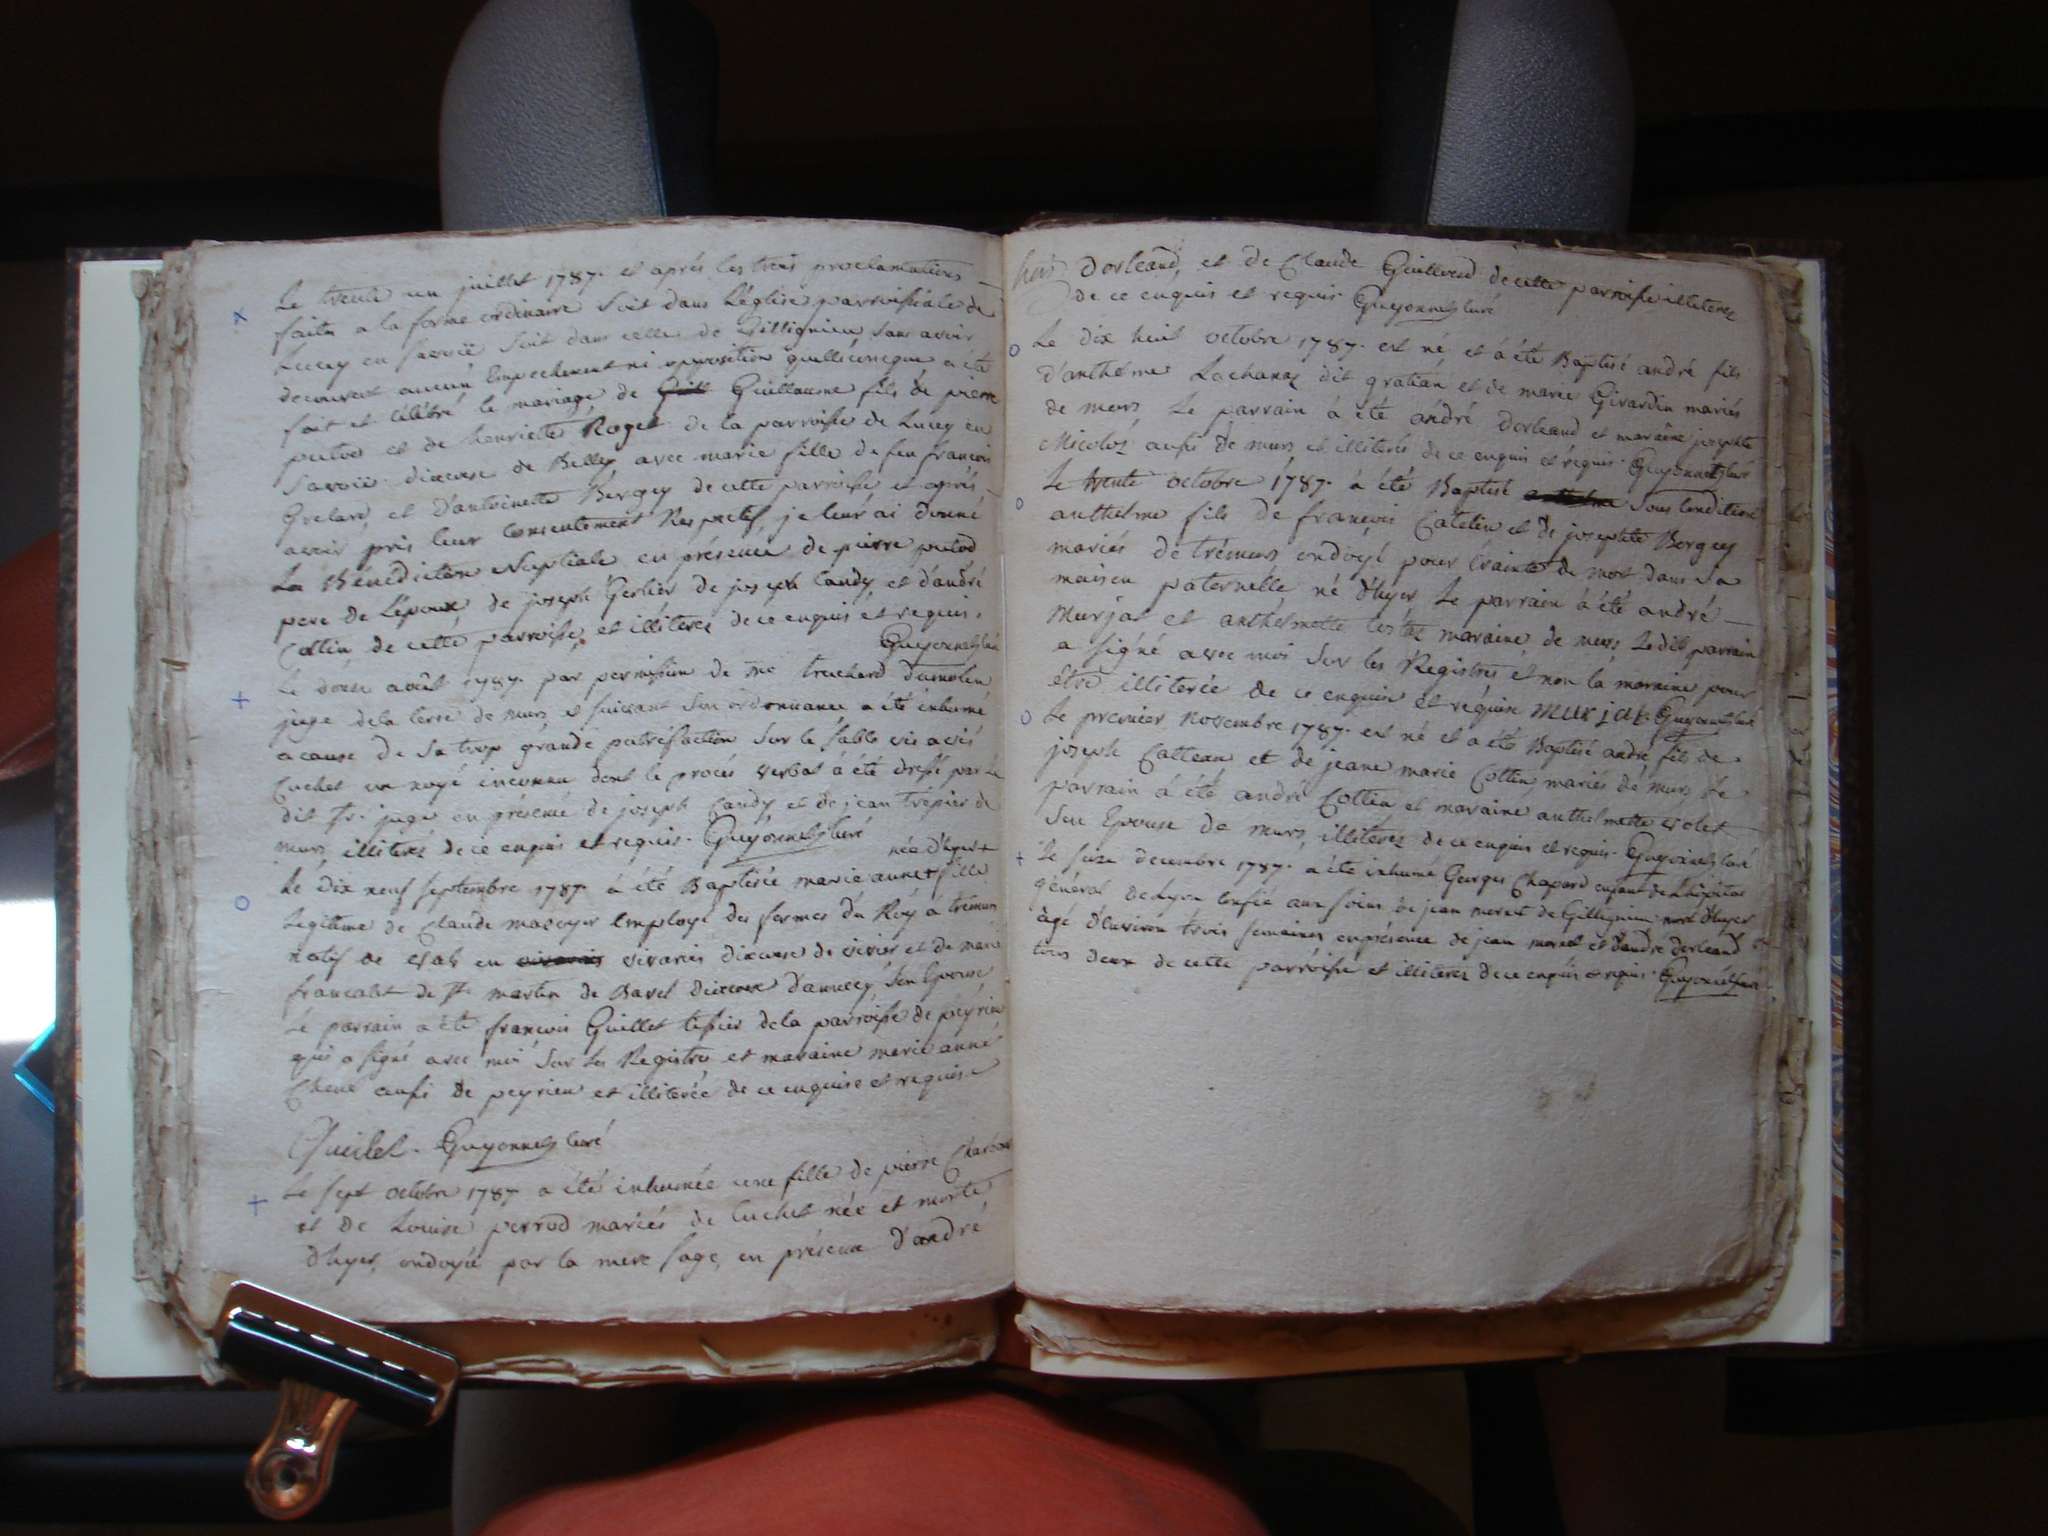 Le trente un juillet 1787. et aprés les trois proclamations
faites a la forme ordinaire Soit dans L'église parroissiale de
Lucey en Savoië Soit dans celle de Gillignieu, sans avoir
decouvert aucun Empechement ni opposition quelléconque a été
fait et célébré le mariage de Guillaume fils de pierre
putod et de henriette Roget de la parroisse de Lucey en
Savoië dioceuse de Belley avec marie fille de feu françois
Grelard, et d'antoinette Bergey de cette parroisse et aprés
avoir pris leur Consentement Respectif, je leur ai donné
La Bénédiction Nuptiale en présence de pierre putod
pere de L'époux de joseph Gerlier de joseph Candy et d'andré
Cottin de cette parroisse, et illiterez de ce enquis et requis.
Guyonnet curé
Le douse août 1787. par permission de me truchard dumolin
juge dela terre de murs et suivant Son ordonnance a été inhumé
a cause de Sa trop grande putréfaction Sur le Sable vis a vis
Cuchet un noyé inconnu dont le procés verbal à été dressé par le
dit Sr. juge en présence de joseph Candy et de jean trépier de
murs illiterés de ce enquis et requis. Guyonnet curé
née d'hyer +
Le dix neuf septembre 1787. à été Baptisée marie anne + fille
Legitime de Claude masoyer Employé des fermes du Roÿ à trémurs
natif de en vivarais dioceuse de vivier et de marie
francalet de St. martin de dioceuse d'annecy Son Epouse
Le parrain a été françois Guillet tissier dela parroisse de peyrieu
qui a signé avec moi Sur les Registres et maraine marie anne
Chene aussi de peyrieu et illiterée de ce enquise et requise
Guilet. Guyonnet curé
Le sept octobre 1787 a été inhumée une fille de pierre
et de Louise perrod mariés de Cuchet née et morte
d'hyer, ondoyée par la mere sage, en présence d'andré
dorleand, et de Claude Guilland de cette parroisse illiterez
de ce enquis et requis Guyonnet curé
Le dix huit octobre 1787. est né et a été Baptisé andré fils
d'anthelme Lachanaz dit gratian et de marie Girardin mariés
de murs Le parrain à été andré dorleand et maraine josephte
Micoloz aussi de murs et illiterés de ce enquis et requis. Guyonnet curé
Le trente octobre 1787. à été Baptisé Sous Condition
anthelme fils de françois Catelin et de josephte Bergey
mariés de trémurs ondoyé pour crainte de mort dans Sa
maison paternelle né d'hyer Le parrain à été andré
Murjat et anthelmette maraine de murs Ledit parrain
a signé avec moi Sur les Registres et non la maraine pour
être illiterée de ce enquise et requise Murjat Guyonnet curé
Le premier novembre 1787. est né et a été Baptisé andré fils de
joseph Cattean et de jeane marie Cottin mariés de murs Le
parrain à été andré Cottin et maraine anthelmette
Son Epouse de murs, illiterez de ce enquis et requis. Guyonnet curé
Le seize decembre 1787. a été inhumé Georges Chapard enfant de L'hôpital
général de Lyon Confié aux soins de jean moret de Gillignieu mort d'hyer
âgé d'Environ trois semaines en présence de jean moret et d'andré dorleand
tous deux de cette parroisse et illiterez de ce enquis et requis. Guyonnet curé